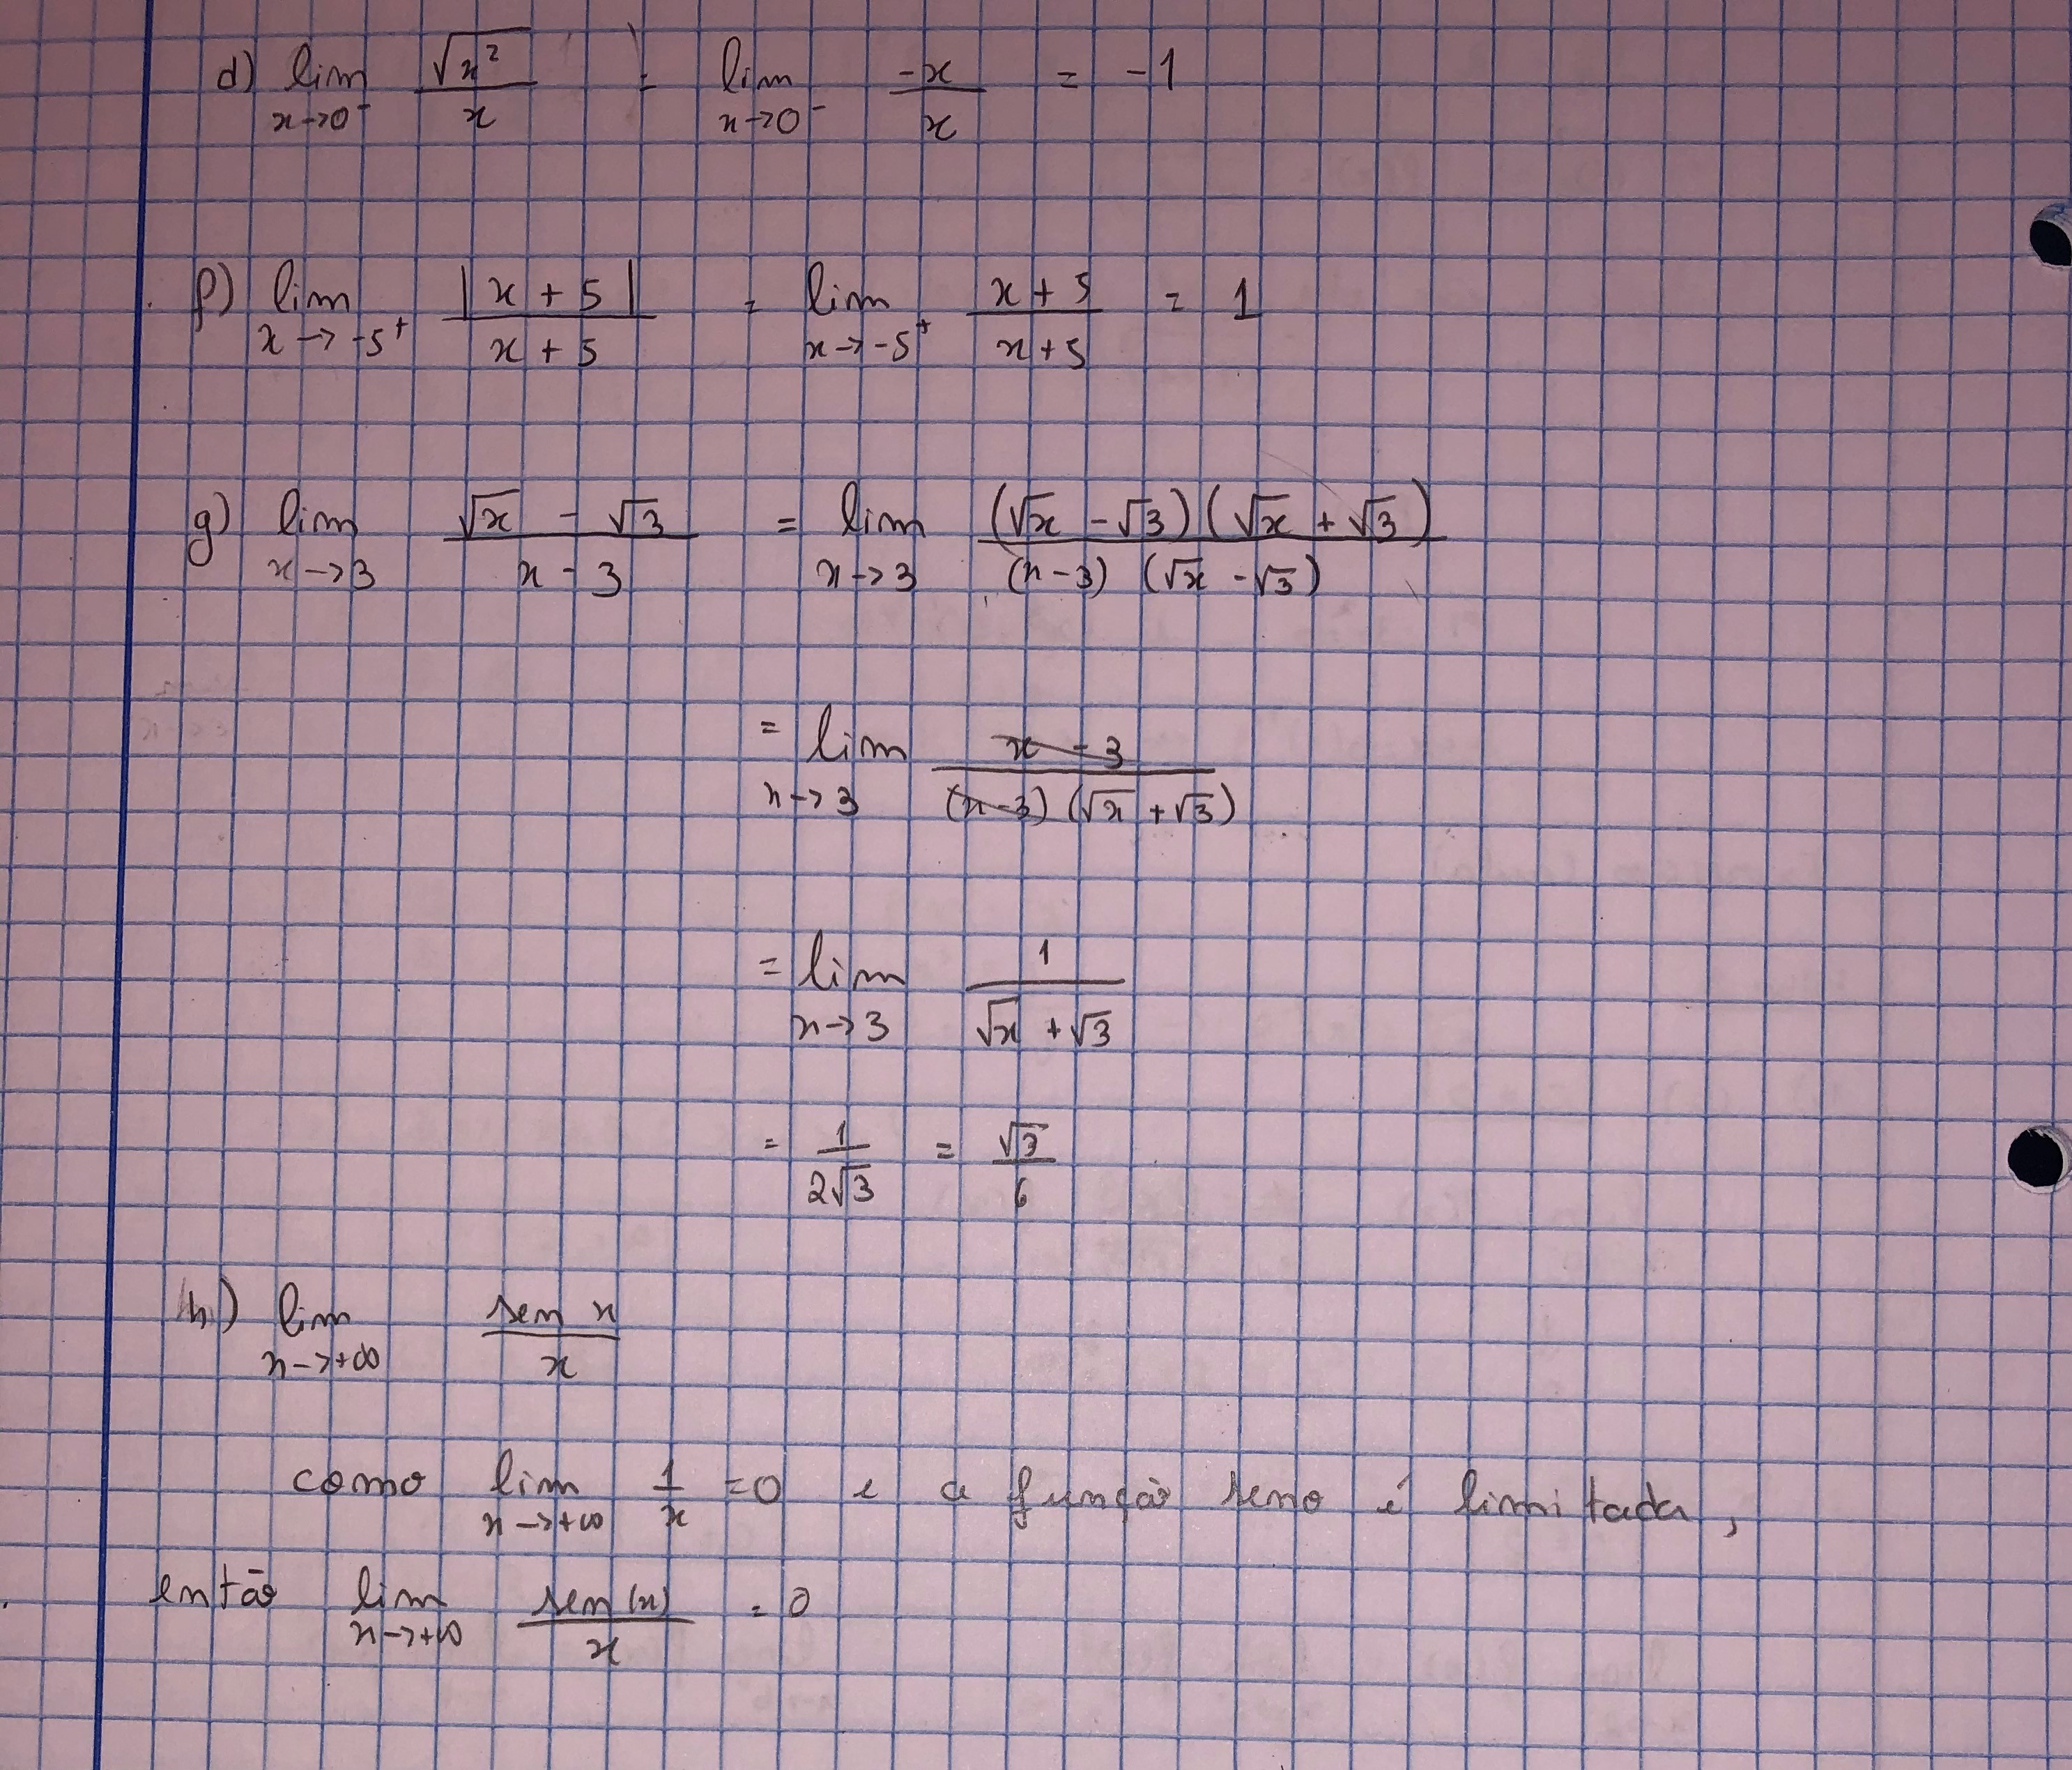 d) lim x→0⁻ √x² / x = lim x→0⁻ -x / x = -1
f) lim x→-5⁺ |x + 5| / x + 5 = lim x→-5⁺ x + 5 / x + 5 = 1
g) lim x→3 √x - √3 / x - 3 = lim x→3 (√x - √3)(√x + √3) / (x-3) (√x - √3)
= lim x→3 x - 3 / (x-3) (√x + √3)
= lim x→3 1 / √x + √3
= 1 / 2√3 = √3 / 6
h) lim x→+∞ sen x / x
como lim x→+∞ 1 / x = 0 e a função seno é limitada,
então lim x→+∞ sen(x) / x = 0